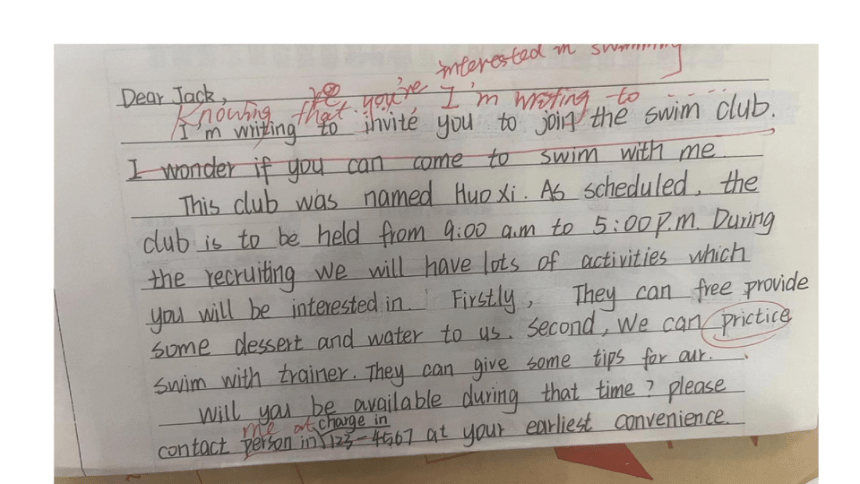 interested in swimming
Dear Jack,
Knowing that you're I'm writing to
I'm writing to invite you to join the swim club.
I wonder if you can come to swim with me
This club was named Huo Xi. As scheduled, the
club is to be held from 9:00 a.m to 5:00 P.m. During
the recruiting we will have lots of activities which
you will be interested in. Firstly, They can free provide
some dessert and water to us. Second, We can prictice
swim with trainer. They can give some tips for our.
Will you be available during that time? please
me at charge in
contact person in 123-4567 at your earliest convenience.